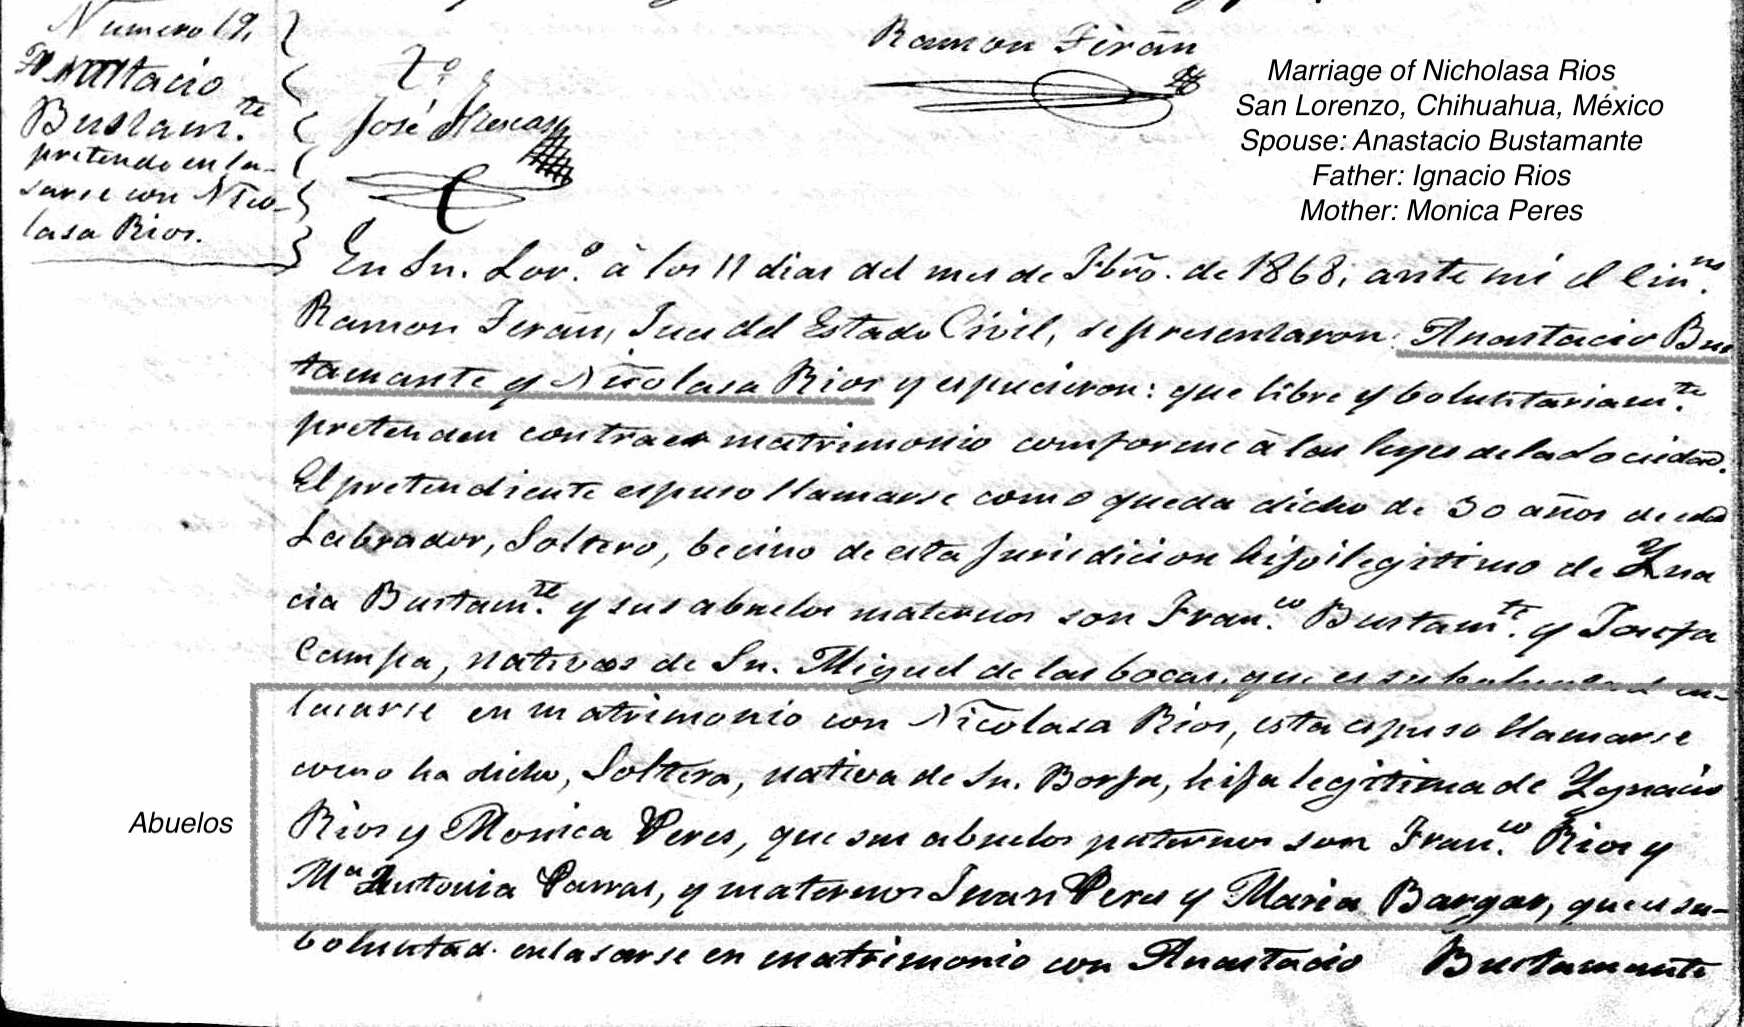 Numero 19.
Anastacio
Bustam.te
pretende enla-
sarse con Nico-
lasa Rios.
Ramon Terán
José
Marriage of Nicholasa Rios
San Lorenzo, Chihuahua, México
Spouse: Anastacio Bustamante
Father: Ignacio Rios
Mother: Monica Peres
En Sn. Lor.o á los 11 dias del mes de Fbro. de 1868, ante mi el
Ramon Terán, Jues del Estado Civil, se presentaron: Anastacio Bus
tamante y Nicolasa Rios y espucieron: que libre y boluntariam.te
pretenden contraer matrimonio comforme á las leyes de la sociedad.
El pretendiente espuso llamarse como queda dicho de 30 años de edad
Labrador, Soltero, becino de esta jurisdicion hijo ilegitimo de Yna
cia Bustam.te y sus abuelos maternos son Fran.co Bustam.te y Josefa
Campa, nativos de Sn. Miguel de las bocas, que es su boluntad en-
lasarse en matrimonio con Nicolasa Rios, esta espuso llamarse
como ha dicho, Soltera, nativa de Sn. Borja, hija legitima de Ygnacio
Abuelos
Rios y Monica Peres, que sus abuelos paternos son Fran.co Rios y
Ma Antonia Parras, y maternos Juan Peres y Maria Bargas, que es su-
boluntad enlasarse en matrimonio con Anastacio Bustamante